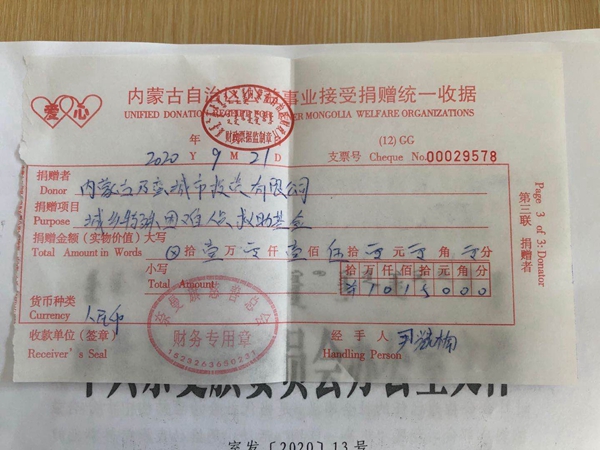 爱心
内蒙古自治区 事业接受捐赠统一收据
UNIFIED DONATION MONGOLIA WELFARE ORGANIZATIONS
财政票据监制章
(12) GG
2020 年Y 9 月M 21 日D 支票号 Cheque No.00029578
捐赠者
Donor 内蒙古乃蛮城市投资有限公司
捐赠项目
Purpose 城乡特殊困难人员救助基金
捐赠金额(实物价值)大写
Total Amount in Words ⊗拾壹万零仟壹佰伍拾零元零角零分
小写
Total Amount
十万千百十元角分
¥1015000
货币种类
Currency 人民币
奈曼旗慈善总会
财务专用章
收款单位(签章)
Receiver's Seal
经手人
Handling Person
第三联 捐赠者
Page 3 of 3: Donator
室发〔2020〕13号